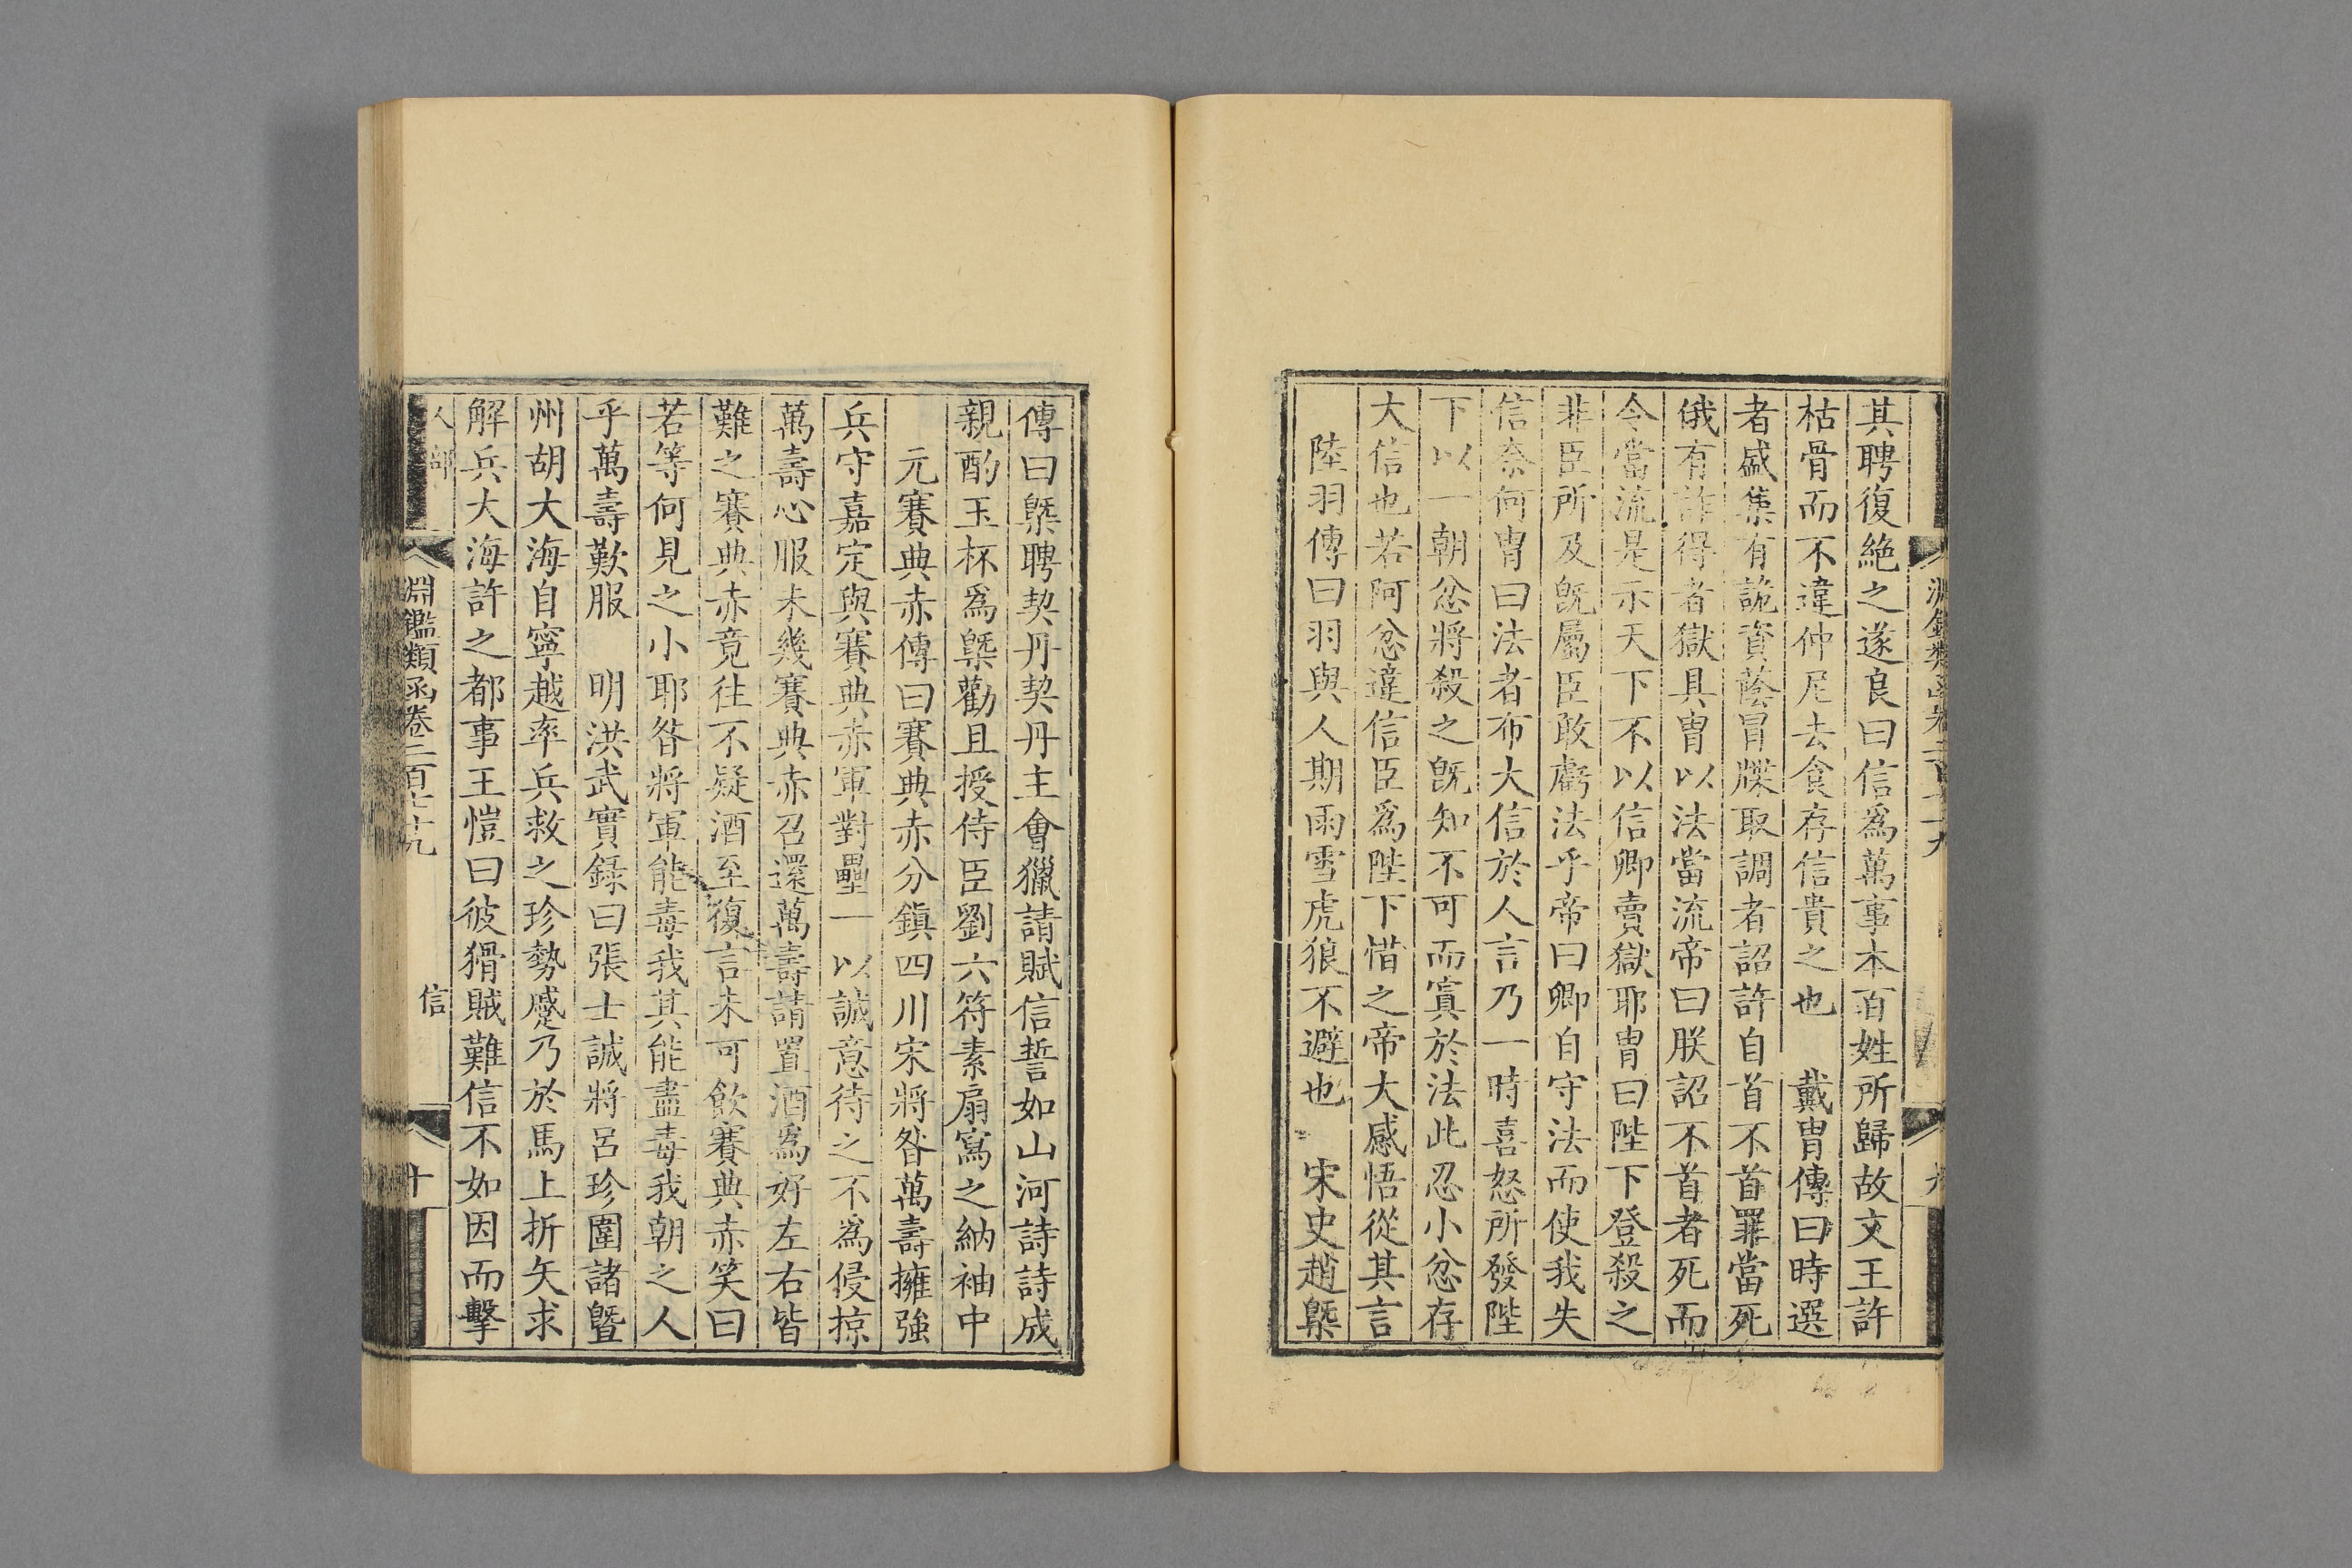 其聘復絶之遂良曰信爲萬事本百姓所歸故文王許
枯骨而不違仲尼去食存信貴之也　戴胄傳曰時選
者盛集有詭資蔭冒牒取調者詔許自首不首罪當死
俄有詐得者獄具胄以法當流帝曰朕詔不首者死而
今當流是示天下不以信卿賣獄耶胄曰陛下登殺之
非臣所及旣屬臣敢虧法乎帝曰卿自守法而使我失
信奈何胄曰法者布大信於人言乃一時喜怒所發陛
下以一朝忿將殺之旣知不可而寘於法此忍小忿存
大信也若阿忿違信臣爲陛下惜之帝大感悟從其言
陸羽傳曰羽與人期雨雪虎狼不避也　宋史趙槩
傳曰槩聘契丹契丹主會獵請賦信誓如山河詩詩成
親酌玉杯爲槩勸且授侍臣劉六符素扇寫之納袖中
元賽典赤傳曰賽典赤分鎭四川宋將昝萬壽擁強
兵守嘉定與賽典赤軍對壘一以誠意待之不爲侵掠
萬壽心服未幾賽典赤召還萬壽請置酒爲好左右皆
難之賽典赤竟往不疑酒至復言未可飲賽典赤笑曰
若等何見之小耶昝將軍能毒我其能盡毒我朝之人
乎萬壽歎服　明洪武實錄曰張士誠將呂珍圍諸曁
州胡大海自寧越率兵救之珍勢蹙乃於馬上折矢求
解兵大海許之都事王愷曰彼猾賊難信不如因而擊
人部　淵鑑類函卷二百七十九　信　十